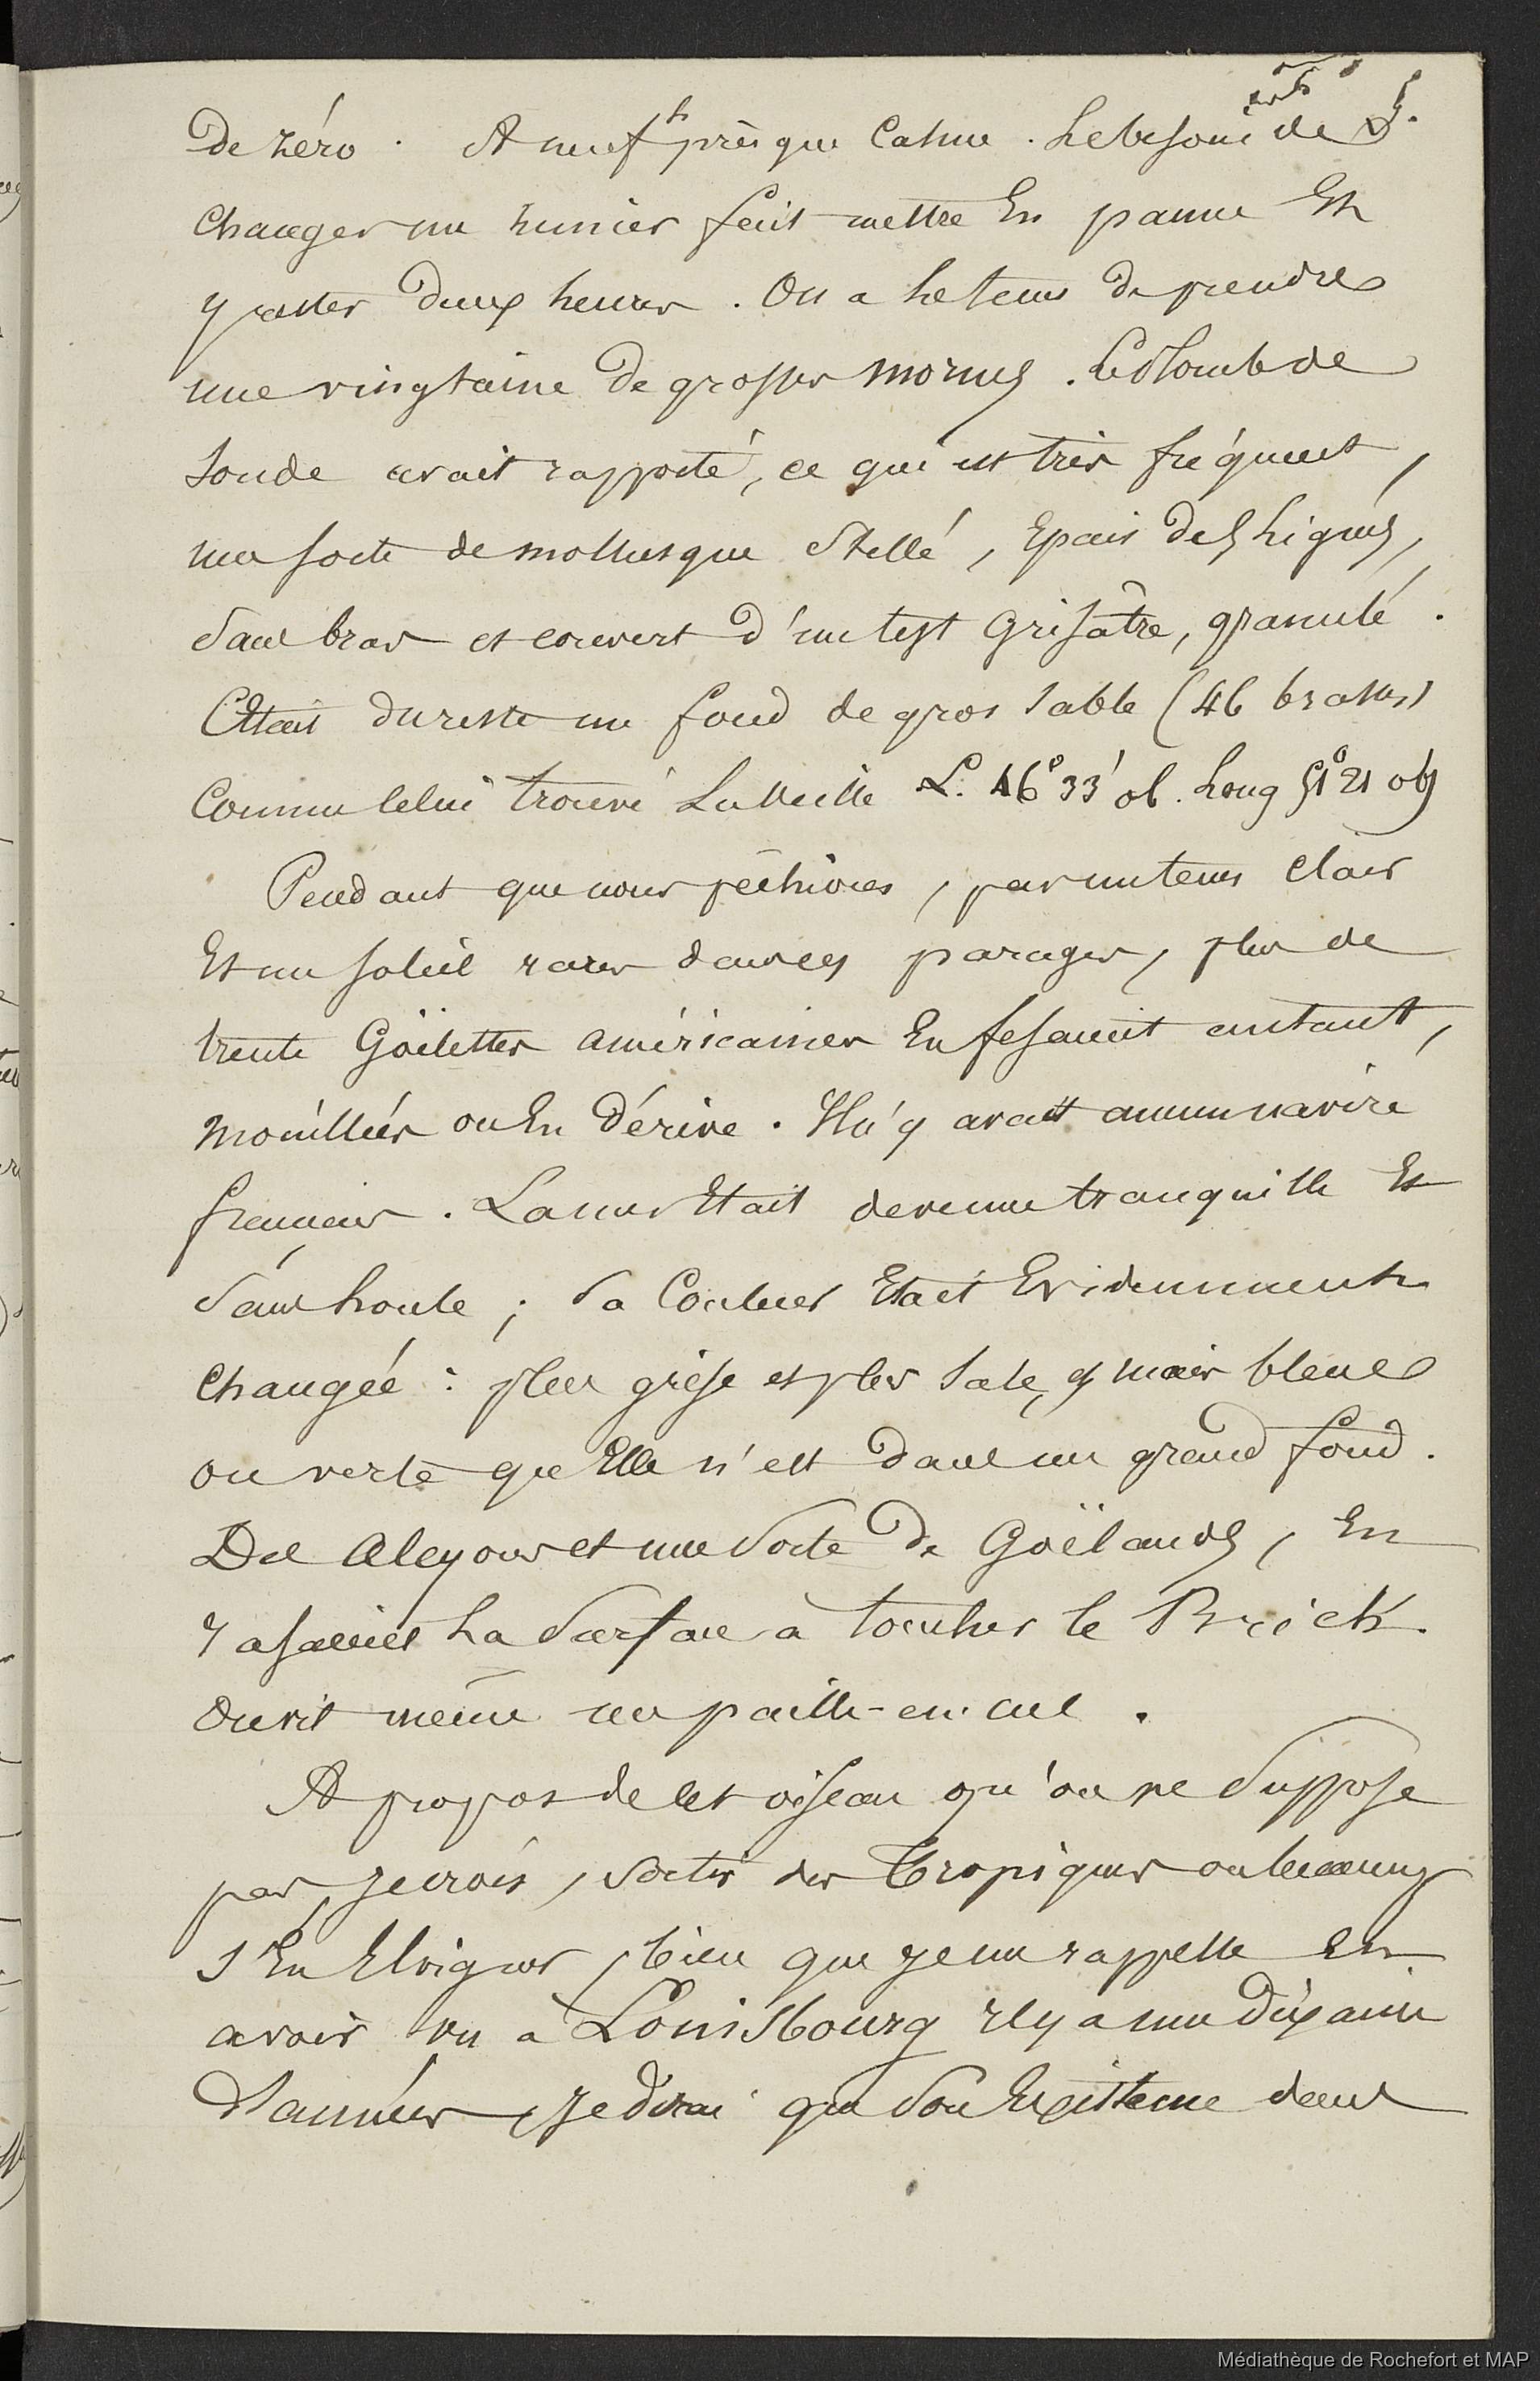 de zéro. A neuf h presque calme. Le besoin de
changer un hunier fait mettre en panne et
y rester deux heures. On a le tems de prendre
une vingtaine de grosses morues. Le plomb de
sonde avait rapporté, ce qui est très fréquent,
une sorte de mollusque stellé, épais de 5 lignes,
sans bras et couvert d'un test grisâtre, granulé.
C'était du reste un fond de gros sable (46 brasses)
comme celui trouvé la veille L. 46° 33' ob. Long 51° 21 ob
Pendant que nous pêchions, par un tems clair
et un soleil rares dans ces parages, plus de
trente Goëlettes américaines en fesaient autant,
mouillées ou en dérive. Il n'y avait aucun navire
français. La mer était devenue tranquille et
sans houle ; sa couleur était évidemment
changée : plus grise et plus sale, mais bleue
ou verte qu'elle n'est dans un grand fond.
Des alcyons et une sorte de Goëlands, en
rasaient la surface à toucher le Brick.
On vit même un paille-en-cul.
A propos de cet oiseau qu'on ne suppose
pas, je crois, sortir des tropiques ou beaucoup
s'en éloigner, bien que je me rappelle en
avoir vu à Louisbourg il y a une dixaine
d'années, je dirai que son existence dans
Médiathèque de Rochefort et MAP